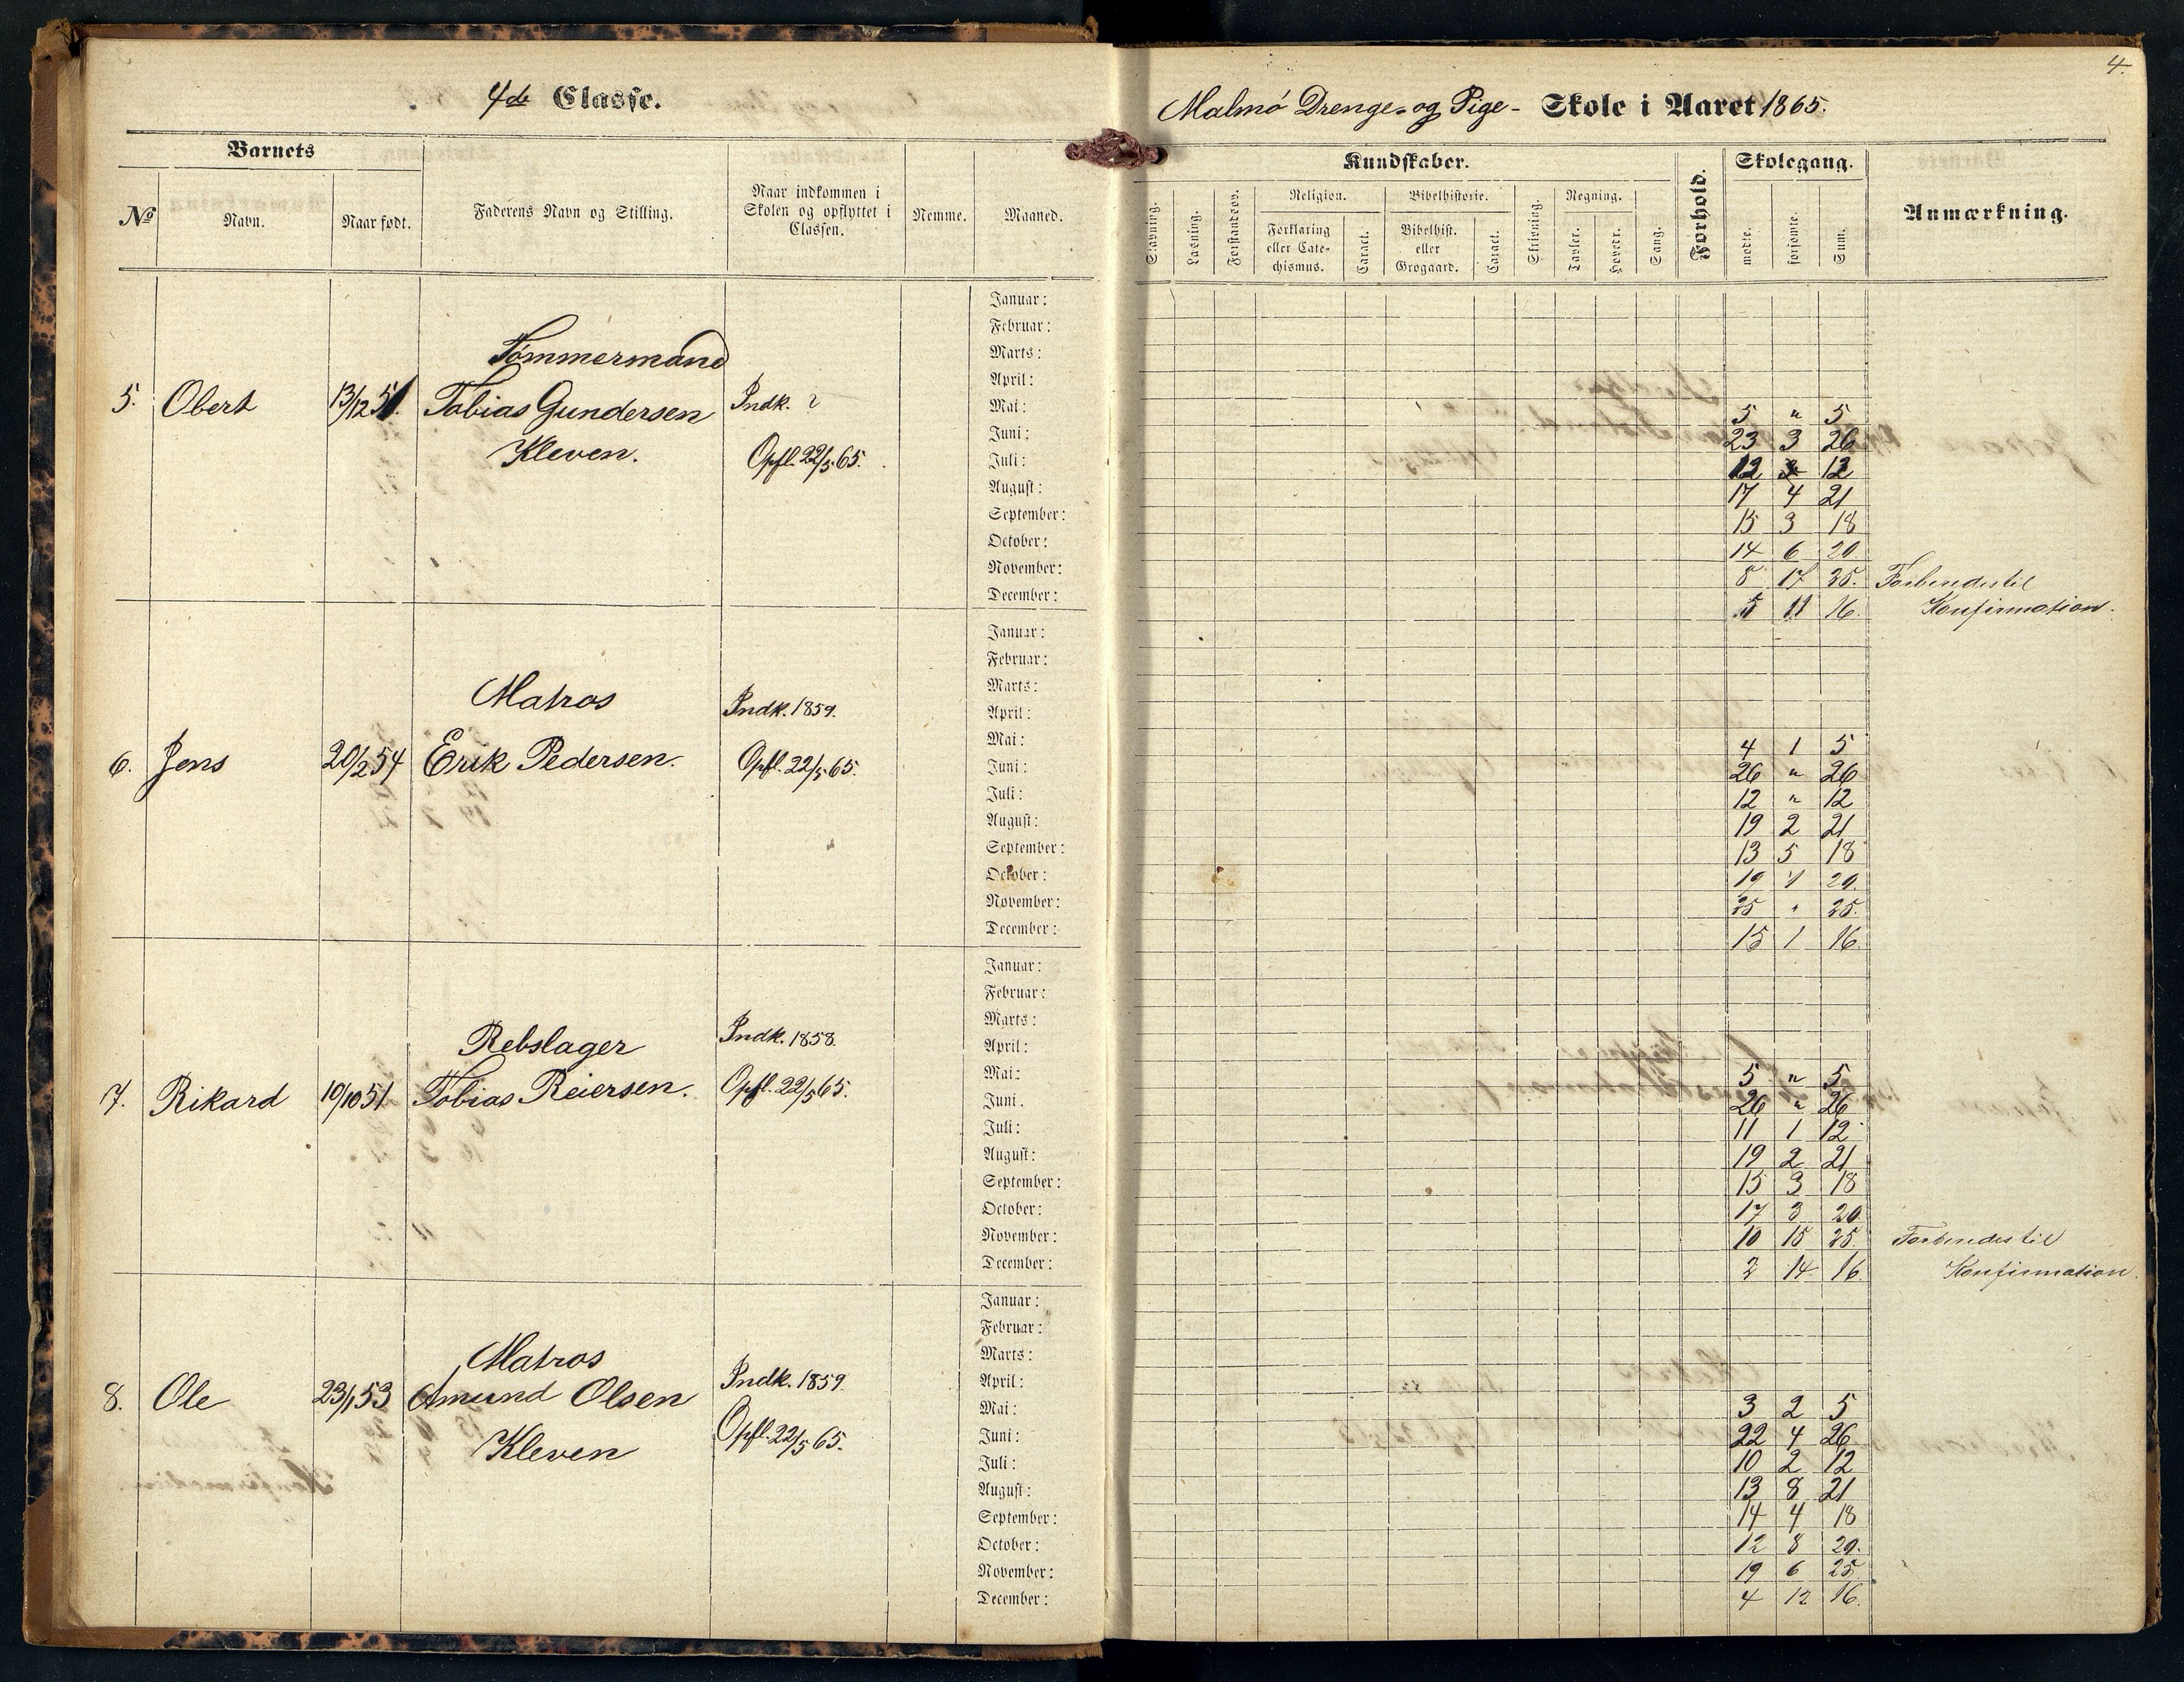 4.
4de Classe.
Malmö Drenge- og Pige- Skole i Aaret 1865.
Barnets
Faderens Navn og Stilling.
Naar indkommen i
Skolen og opflyttet i
Classen.
Nemme.
Maaned.
Kundskaber.
Forhold.
Skolegang.
Anmærkning.
№
Navn.
Naar født.
Stavning.
Læsning.
Forstandsøv.
Religion.
Bibelhistorie.
Skrivning.
Regning.
Sang.
mødte.
forsømte.
Sum.
Forklaring
eller Cate-
chismus.
Caract.
Bibelhist.
eller
Grogaard.
Caract.
Tavler.
Hovedr.
5. Obert 13/12 51.
Tømmermand
Tobias Gundersen
Kleven.
Indk. ?
Opfl. 22/5 65.
Januar:
Februar:
Marts:
April:
Mai: 5 " 5
Juni: 23 3 26
Juli: 12 12
August: 17 4 21
September: 15 3 18
October: 14 6 20.
November: 8 17 25. Forberedes til
December: 5 11 16. Konfirmation.
6. Jens 20/2 54
Matros
Erik Pedersen.
Indk. 1859.
Opfl. 22/5 65.
Januar:
Februar:
Marts:
April:
Mai: 4 1 5
Juni: 26 " 26
Juli: 12 " 12
August: 19 2 21
September: 13 5 18
October: 19 1 20.
November: 25 " 25.
December: 15 1 16.
7. Rikard 10/10 51
Rebslager
Tobias Reiersen.
Indk. 1858.
Opfl. 22/5 65.
Januar:
Februar:
Marts:
April:
Mai: 5 " 5
Juni. 26 " 26
Juli: 11 1 12
August: 19 2 21
September: 15 3 18
October: 17 3 20
November: 10 15 25. Forberedes til
December: 2 14 16. Konfirmation.
8. Ole 23/1 53
Matros
Amund Olsen
Kleven
Indk. 1859.
Opfl. 22/5 65.
Januar:
Februar:
Marts:
April:
Mai: 3 2 5
Juni: 22 4 26
Juli: 10 2 12
August: 13 8 21
September: 14 4 18
October: 12 8 20.
November: 19 6 25
December: 4 12 16.